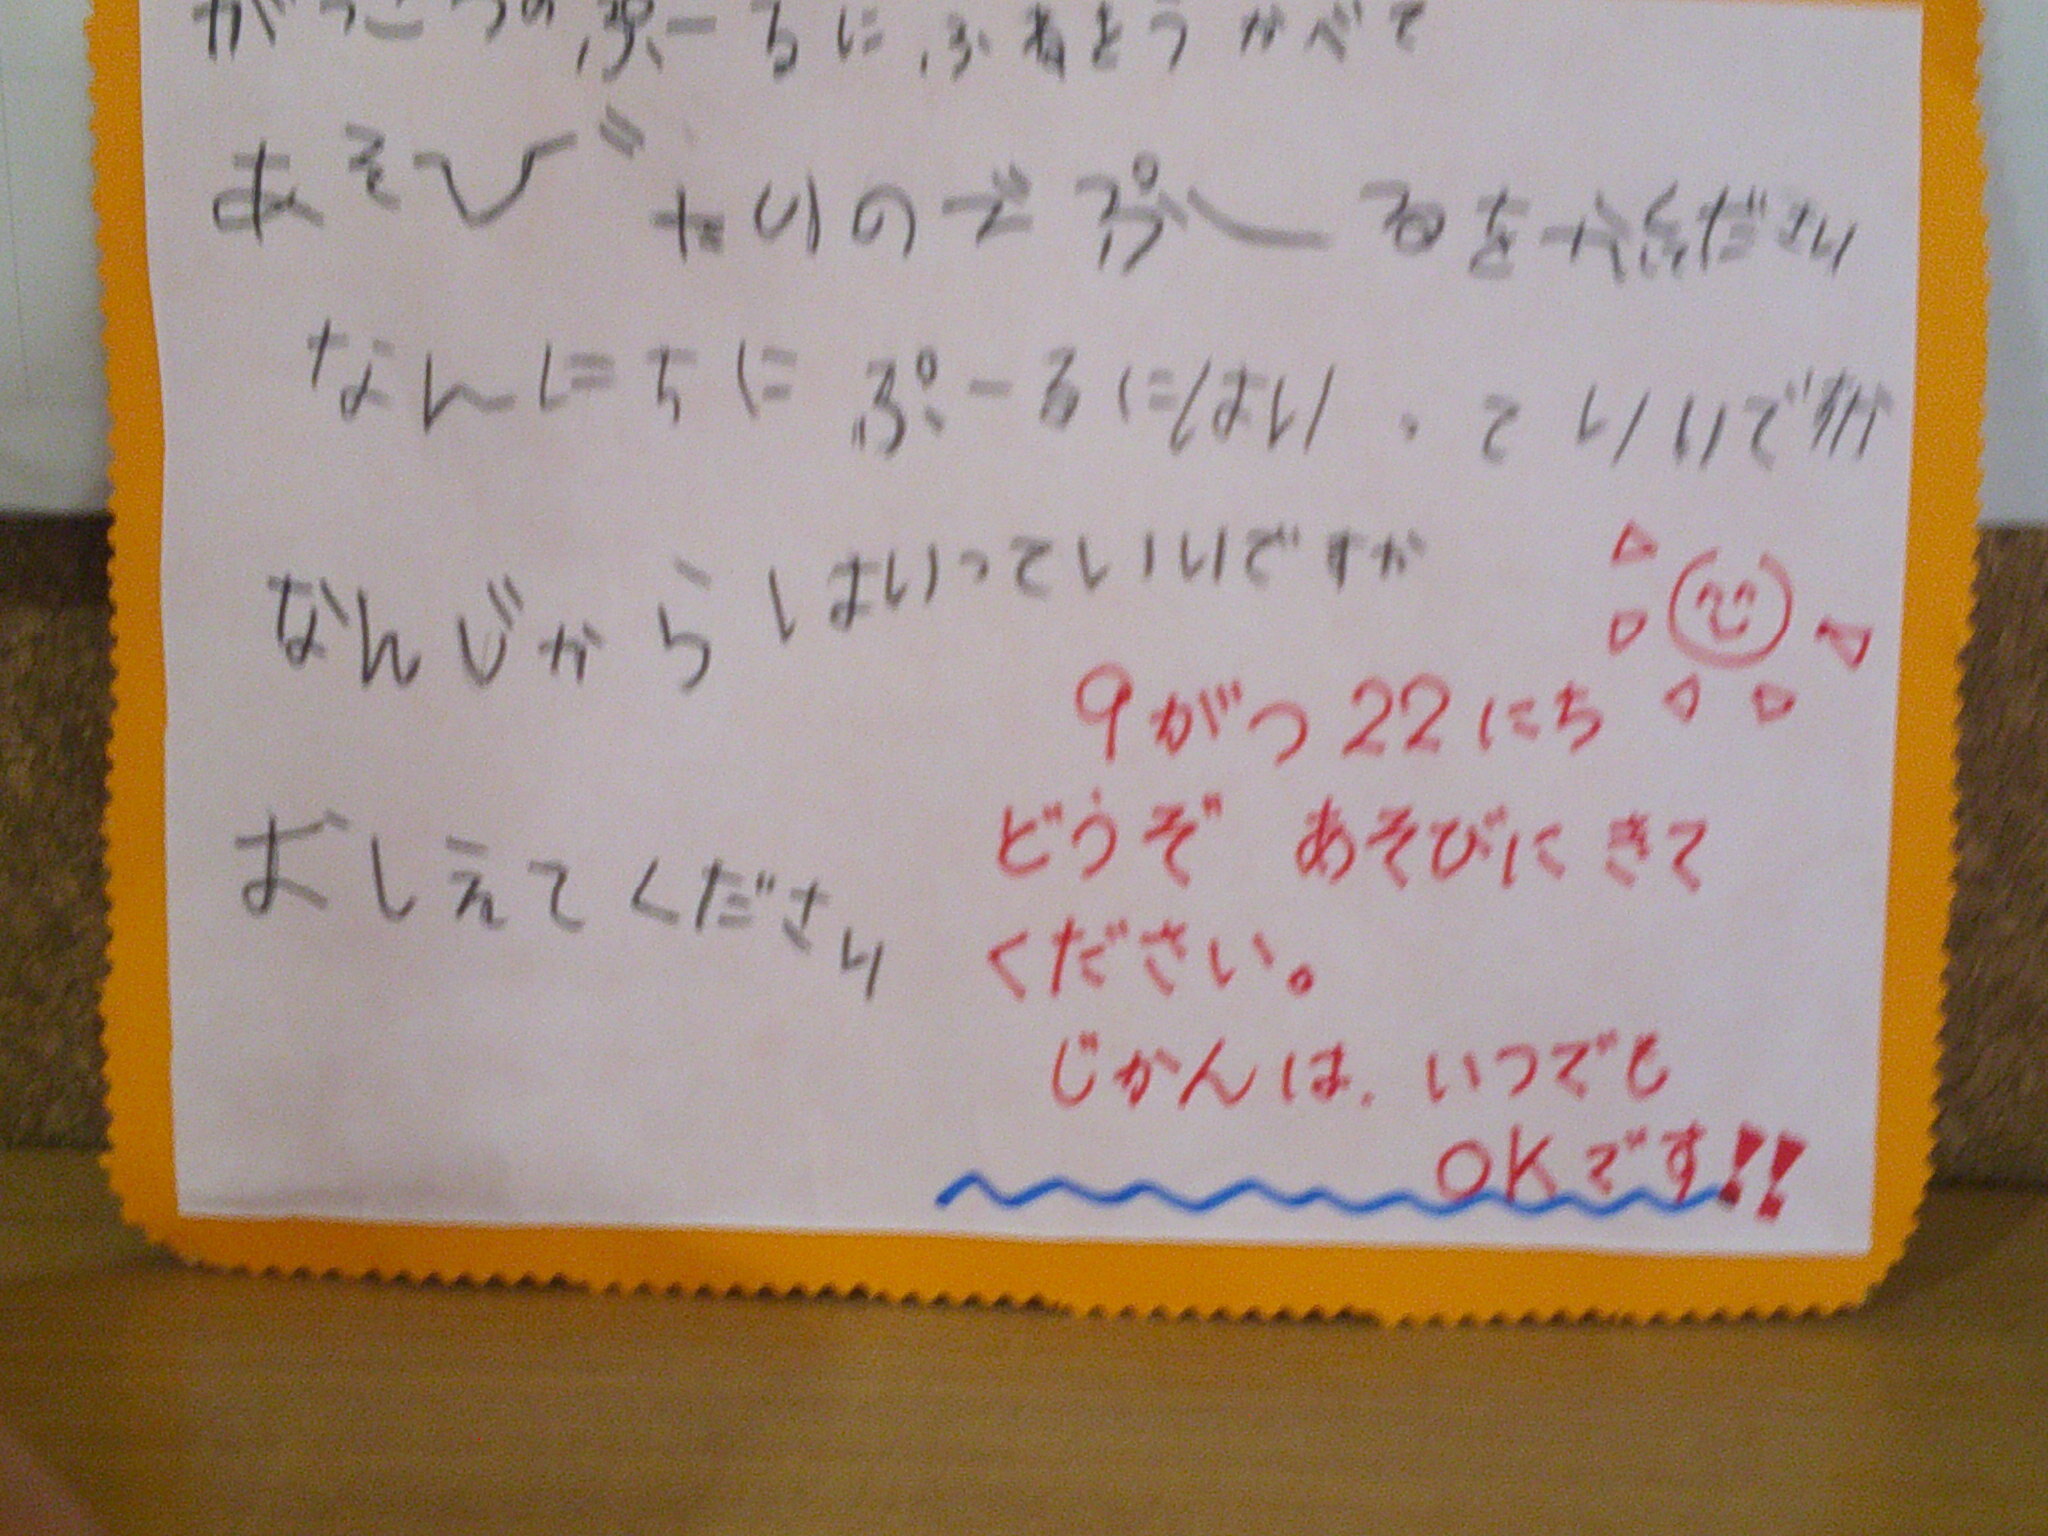 がっこうの ぷーるに ふねをうかべて
あそびたいので ぷーるをかしてください
なんにちに ぷーるにはいっていいですか
なんじから はいっていいですか
おしえてください
9がつ22にち
どうぞ あそびに きて
ください。
じかんは、いつでも
OKです!!